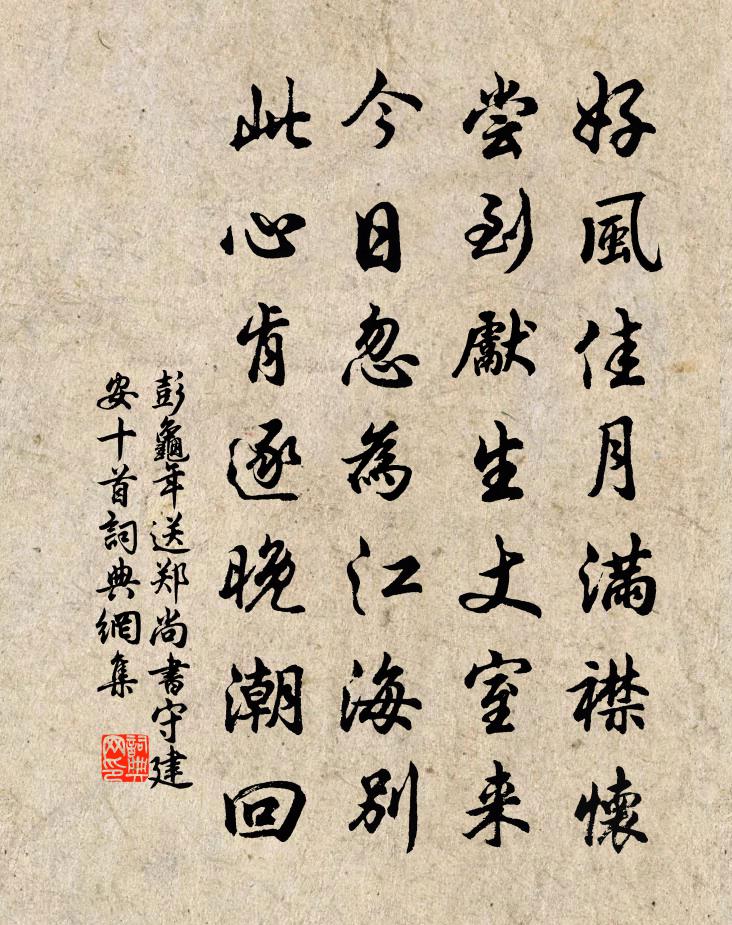 好風佳月滿襟懷
嘗到獻生丈室来
今日忽為江海別
此心肯逐晚潮回
彭龜年送郑尚書守建
安十首詞典網集
詞典
网印